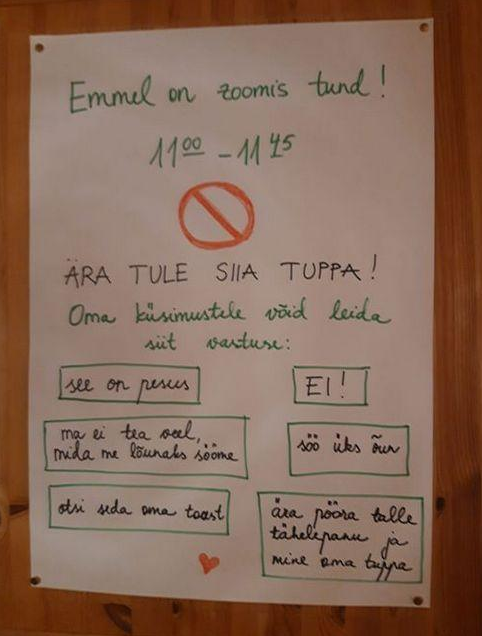 Emmel on zoomis tund!
11⁰⁰ - 11⁴⁵
ÄRA TULE SIIA TUPPA!
Oma küsimustele võid leida
siit vastuse:
see on pesus
EI!
ma ei tea veel,
mida me lõunaks sööme
söö üks õun
otsi seda oma toast
ära pööra talle
tähelepanu ja
mine oma tuppa